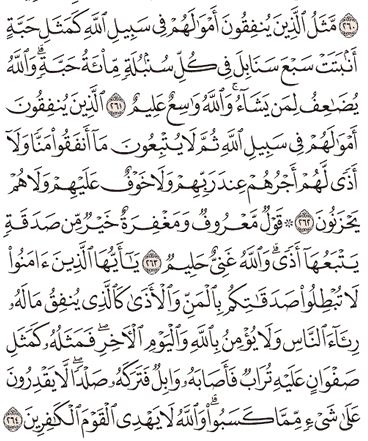 ﴿٢٦٠﴾ مَّثَلُ الَّذِينَ يُنفِقُونَ أَمْوَالَهُمْ فِي سَبِيلِ اللَّهِ كَمَثَلِ حَبَّةٍ
أَنۢبَتَتْ سَبْعَ سَنَابِلَ فِي كُلِّ سُنۢبُلَةٍ مِّاْئَةُ حَبَّةٍ ۗ وَاللَّهُ
يُضَاعِفُ لِمَن يَشَاءُ ۗ وَاللَّهُ وَاسِعٌ عَلِيمٌ ﴿٢٦١﴾ الَّذِينَ يُنفِقُونَ
أَمْوَالَهُمْ فِي سَبِيلِ اللَّهِ ثُمَّ لَا يُتْبِعُونَ مَا أَنفَقُوا مَنًّا وَلَا
أَذًى لَّهُمْ أَجْرُهُمْ عِندَ رَبِّهِمْ وَلَا خَوْفٌ عَلَيْهِمْ وَلَا هُمْ
يَحْزَنُونَ ﴿٢٦٢﴾ ۞ قَوْلٌ مَّعْرُوفٌ وَمَغْفِرَةٌ خَيْرٌ مِّن صَدَقَةٍ
يَتْبَعُهَا أَذًى ۗ وَاللَّهُ غَنِيٌّ حَلِيمٌ ﴿٢٦٣﴾ يَٰأَيُّهَا الَّذِينَ ءَامَنُوا
لَا تُبْطِلُوا صَدَقَاتِكُم بِالْمَنِّ وَالْأَذَىٰ كَالَّذِي يُنفِقُ مَالَهُ
رِئَاءَ النَّاسِ وَلَا يُؤْمِنُ بِاللَّهِ وَالْيَوْمِ الْأَخِرِ ۖ فَمَثَلُهُ كَمَثَلِ
صَفْوَانٍ عَلَيْهِ تُرَابٌ فَأَصَابَهُ وَابِلٌ فَتَرَكَهُ صَلْدًا ۖ لَّا يَقْدِرُونَ
عَلَىٰ شَيْءٍ مِّمَّا كَسَبُوا ۗ وَاللَّهُ لَا يَهْدِي الْقَوْمَ الْكَٰفِرِينَ ﴿٢٦٤﴾